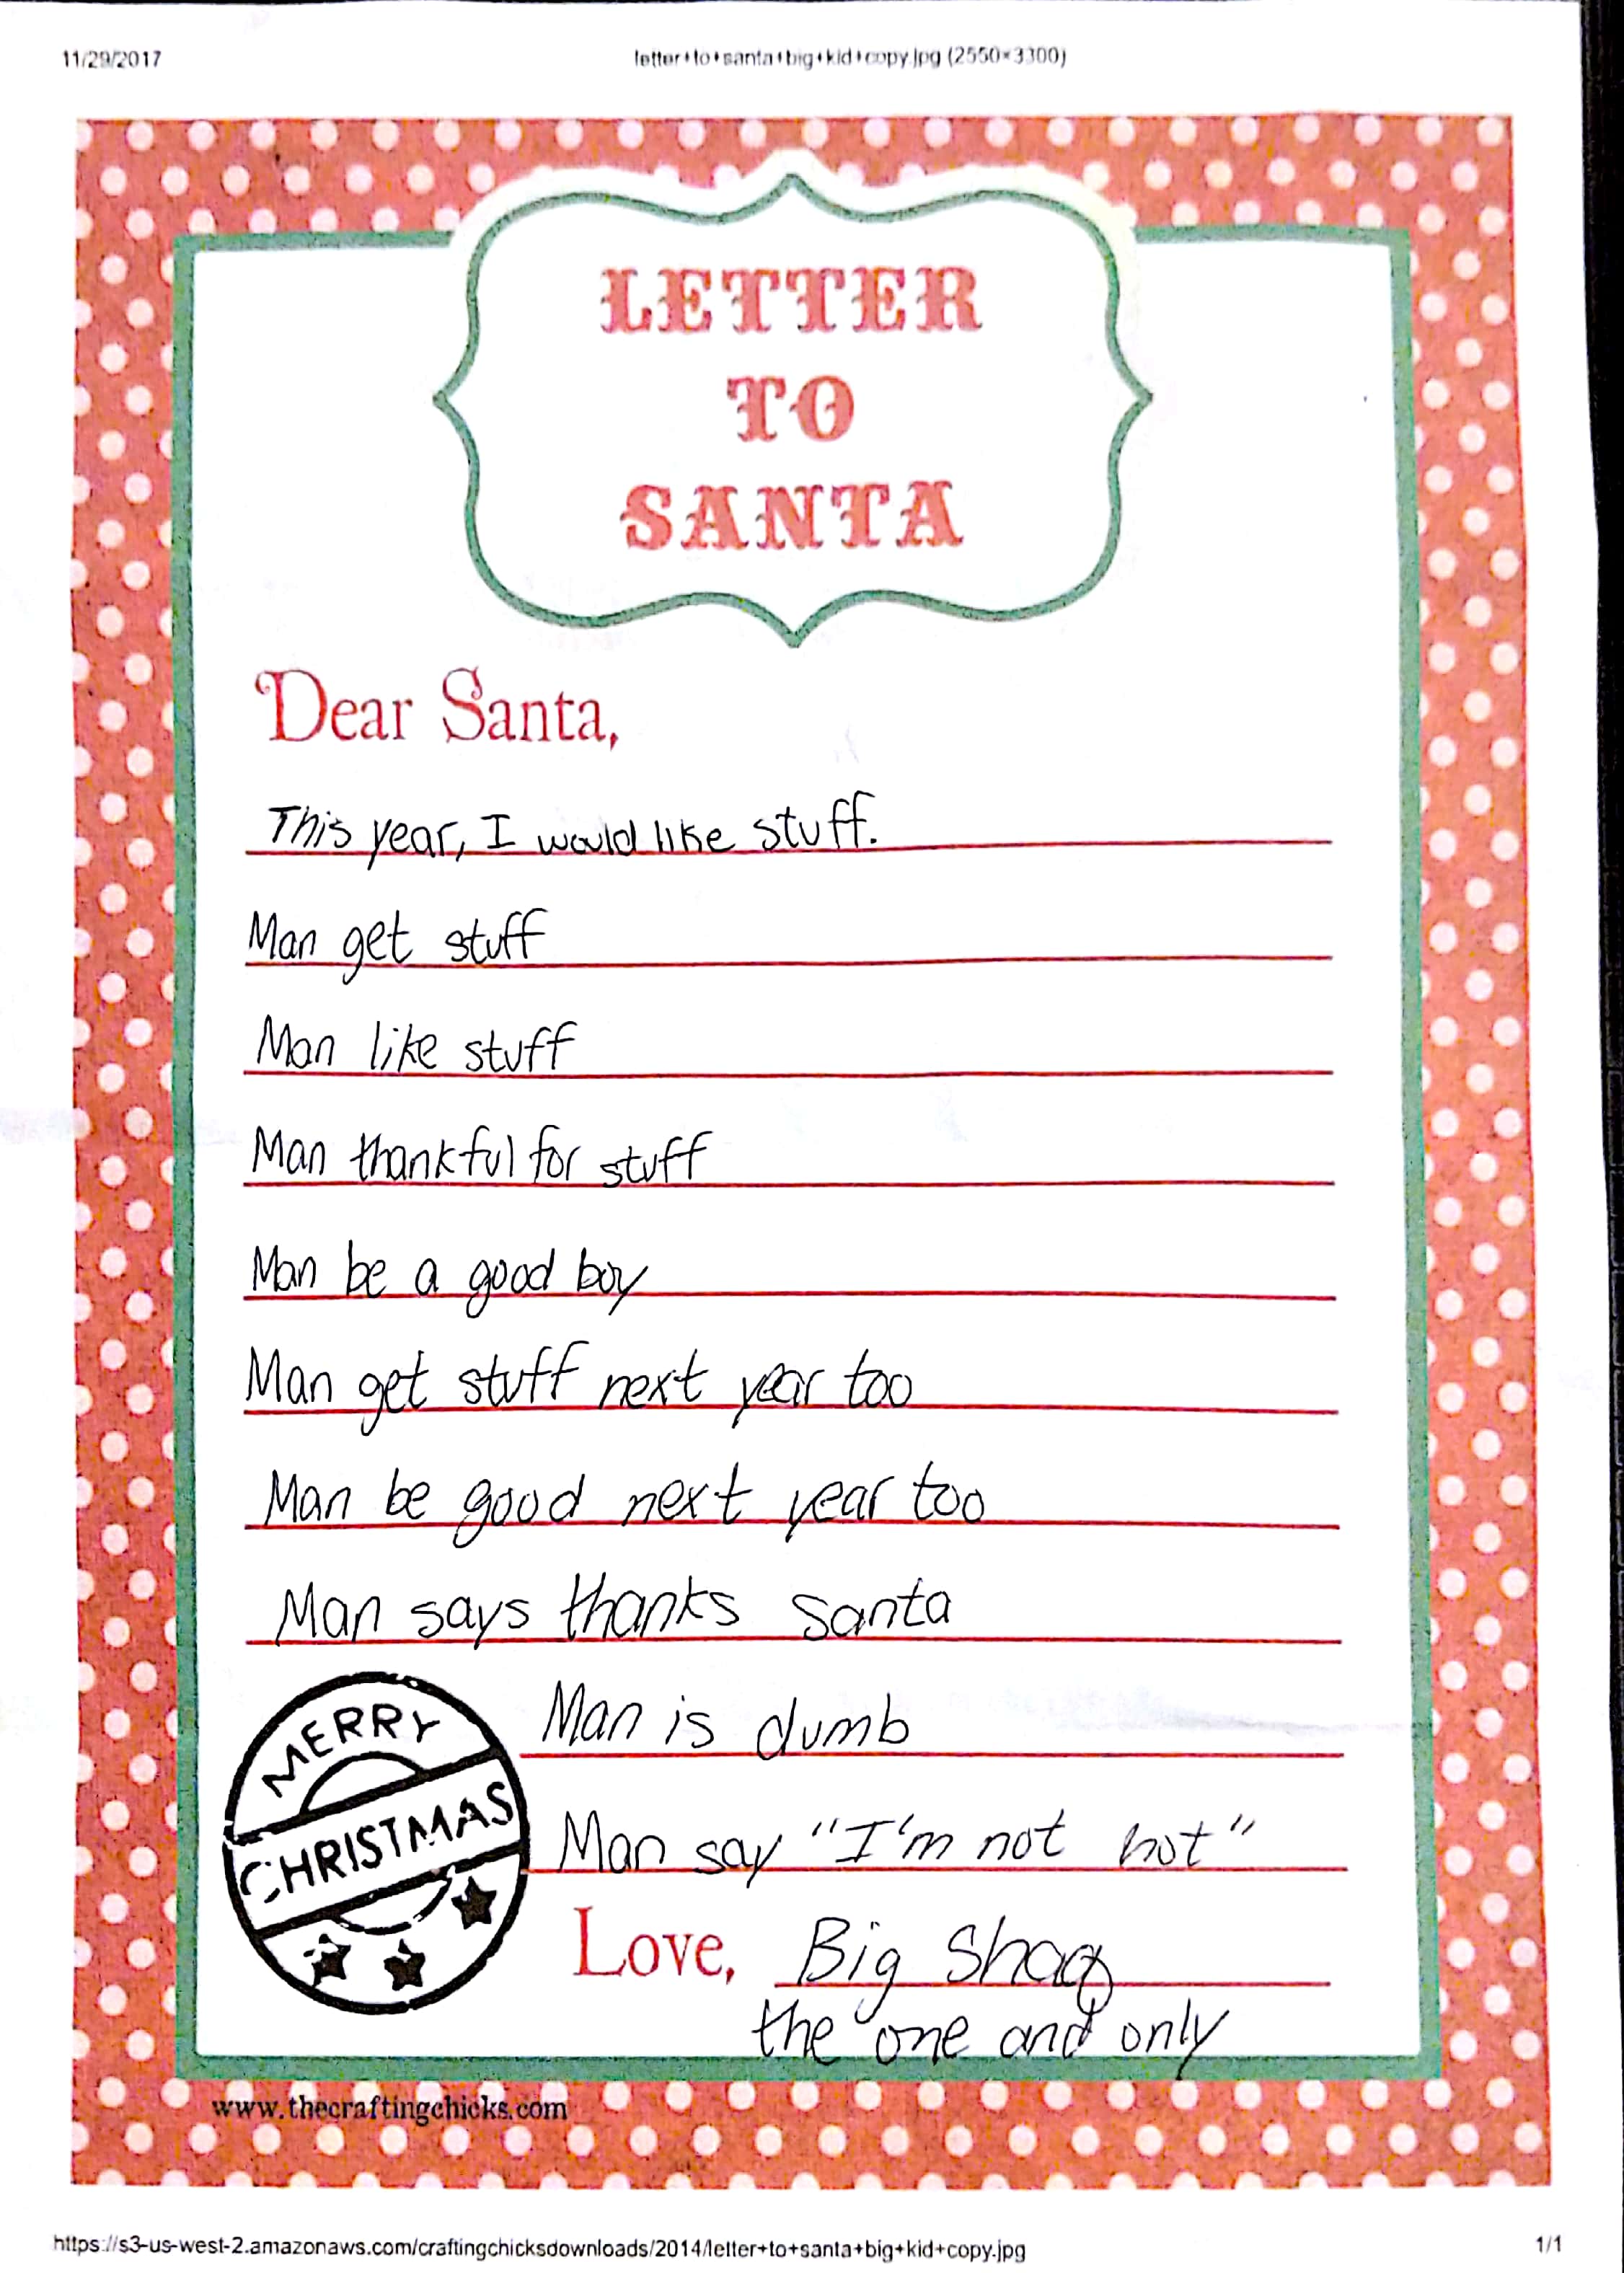 11/29/2017
letter+to+santa+big+kid+copy.jpg (2550×3300)
LETTER
TO
SANTA
Dear Santa,
This year, I would like stuff.
Man get stuff
Man like stuff
Man thankful for stuff
Man be a good boy
Man get stuff next year too
Man be good next year too
Man says thanks Santa
Man is dumb
Man say "I'm not hot"
MERRY
CHRISTMAS
Love, Big Shaq
the one and only
www.thecraftingchicks.com
https://s3-us-west-2.amazonaws.com/craftingchicksdownloads/2014/letter+to+santa+big+kid+copy.jpg
1/1